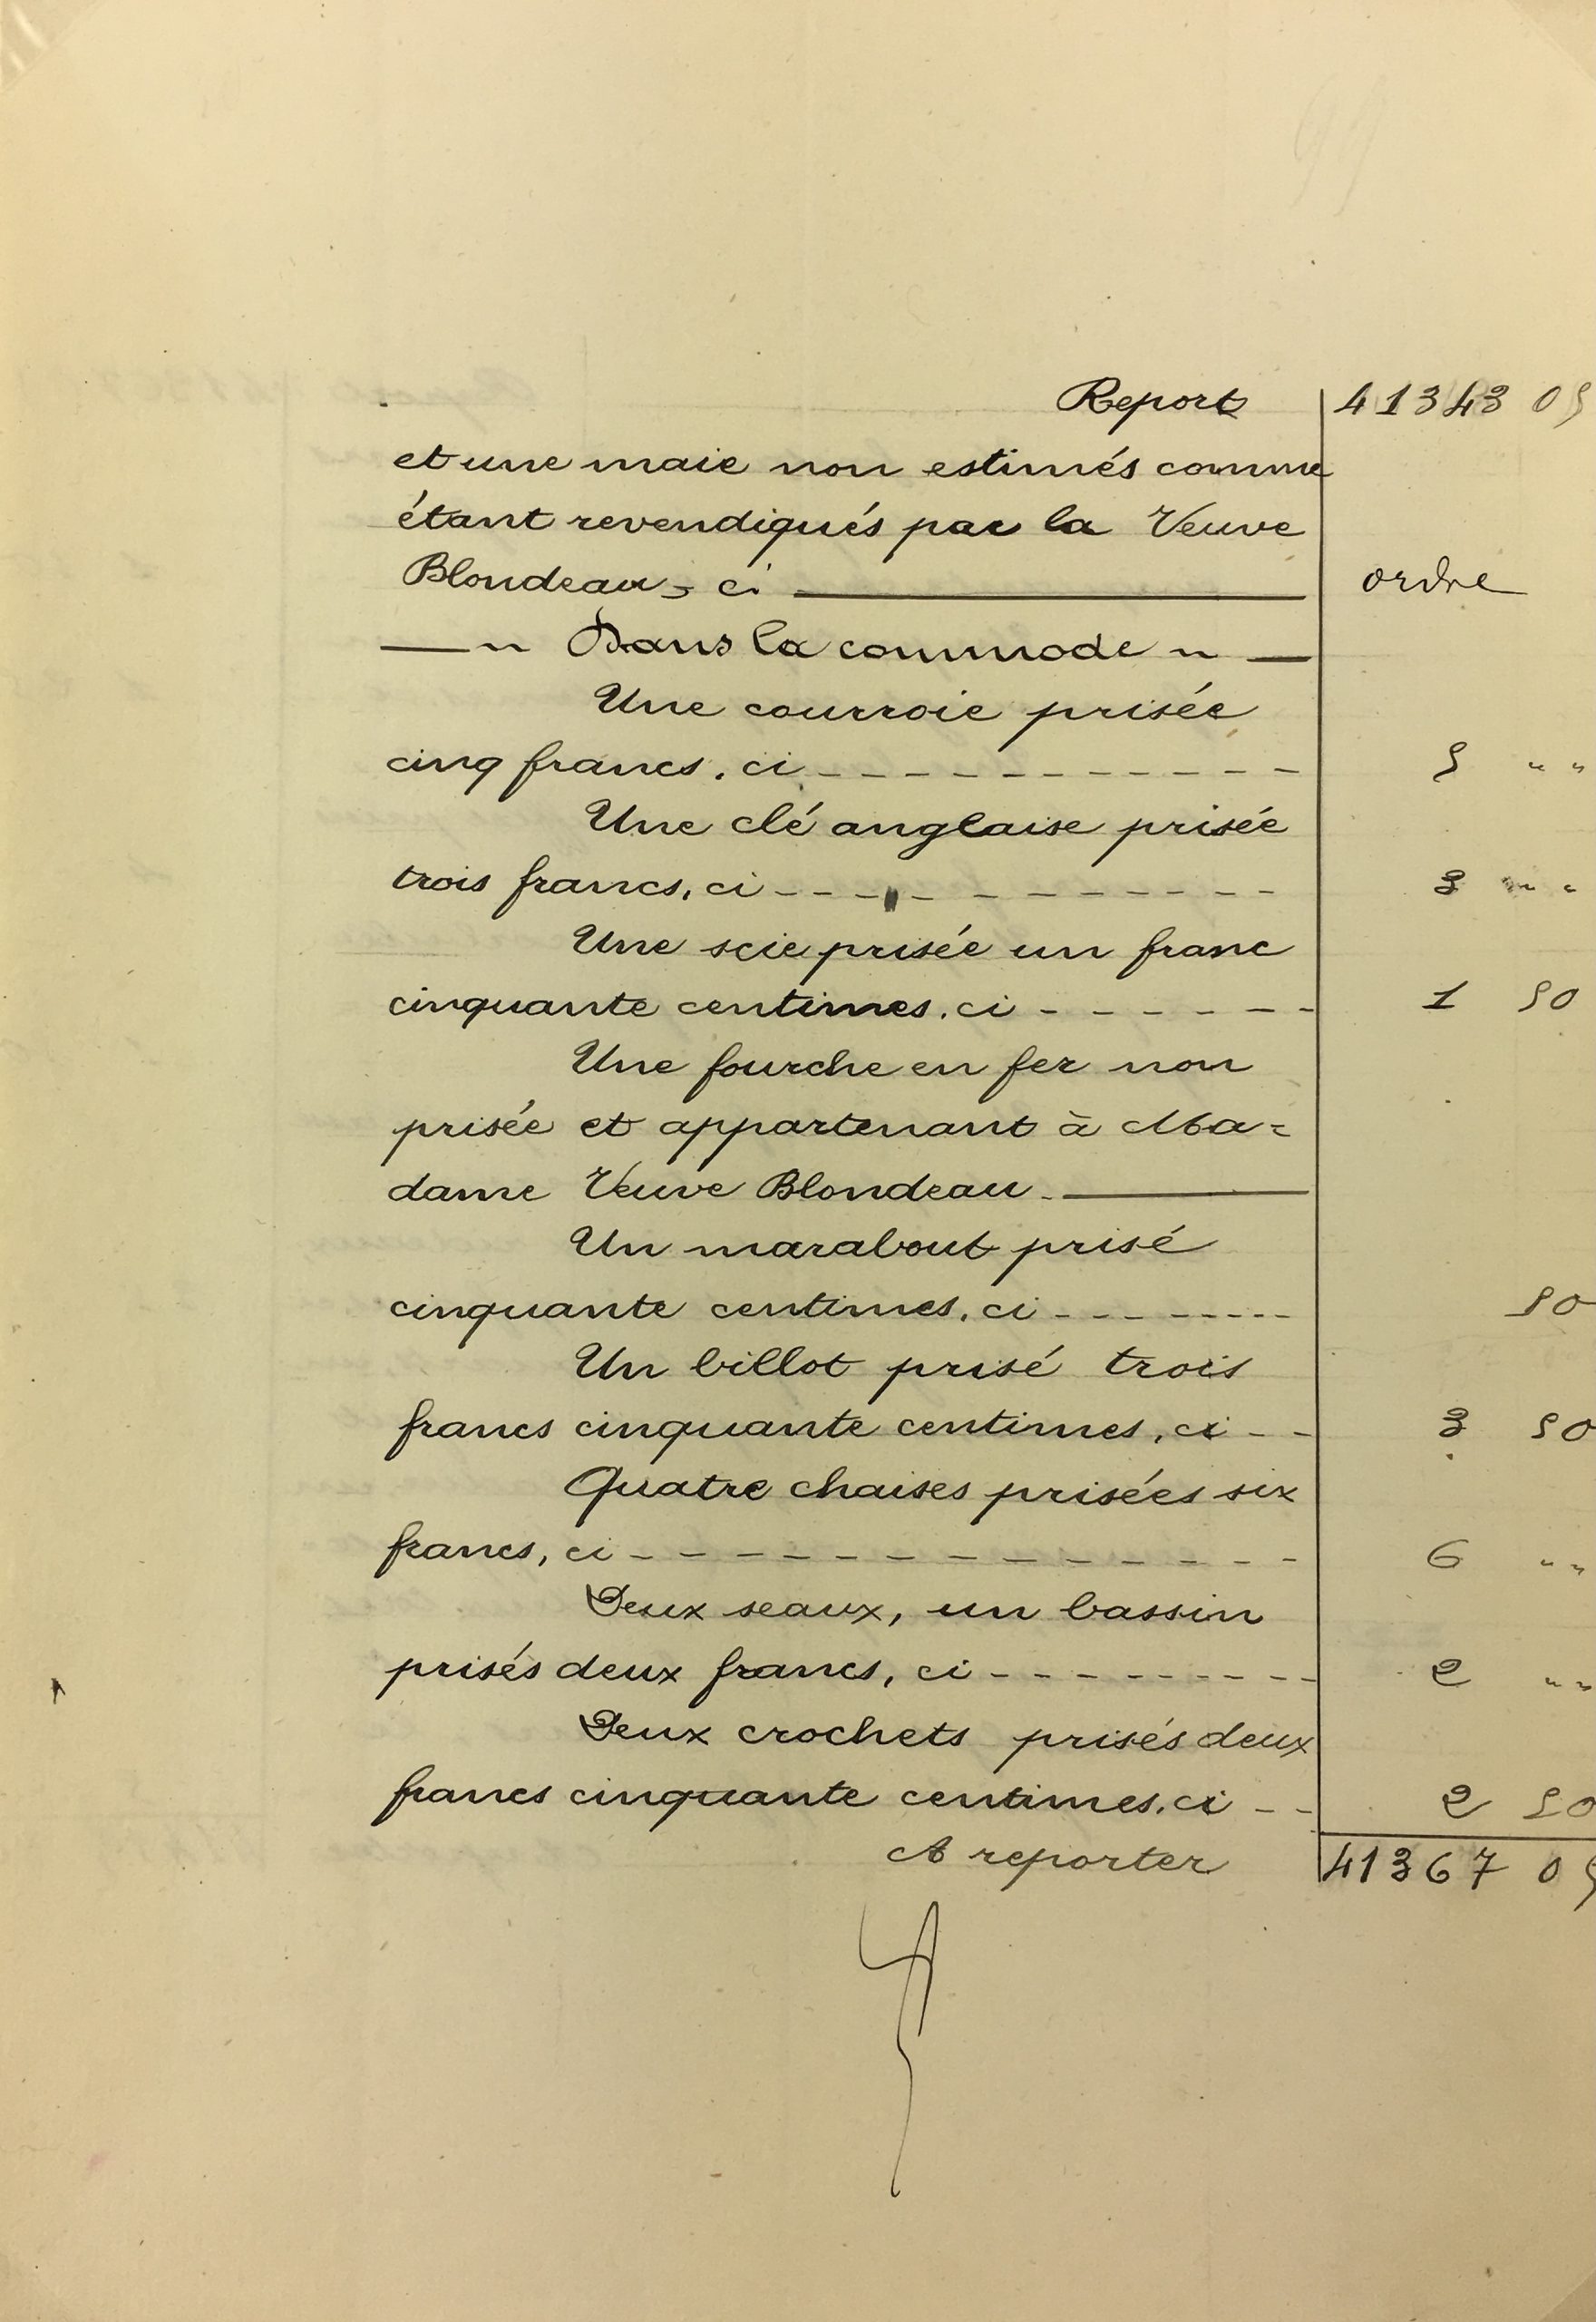 Report 41343 05
et une maie non estimés comme
étant revendiqués par la Veuve
Blondeau, ci ordre
— " Dans la commode " —
Une courroie prisée
cinq francs, ci - - - - - - - - - - 5 " "
Une clé anglaise prisée
trois francs, ci - - - - - - - - - - 3 " "
Une scie prisée un franc
cinquante centimes. ci - - - - - - 1 50
Une fourche en fer non
prisée et appartenant à Ma=
dame Veuve Blondeau. —
Un marabout prisé
cinquante centimes, ci - - - - - - - 50
Un billot prisé trois
francs cinquante centimes, ci - - 3 50
Quatre chaises prisées six
francs, ci - - - - - - - - - - - - 6 " "
Deux seaux, un bassin
prisés deux francs, ci - - - - - - - 2 " "
Deux crochets prisés deux
francs cinquante centimes. ci - - 2 50
A reporter 41367 05